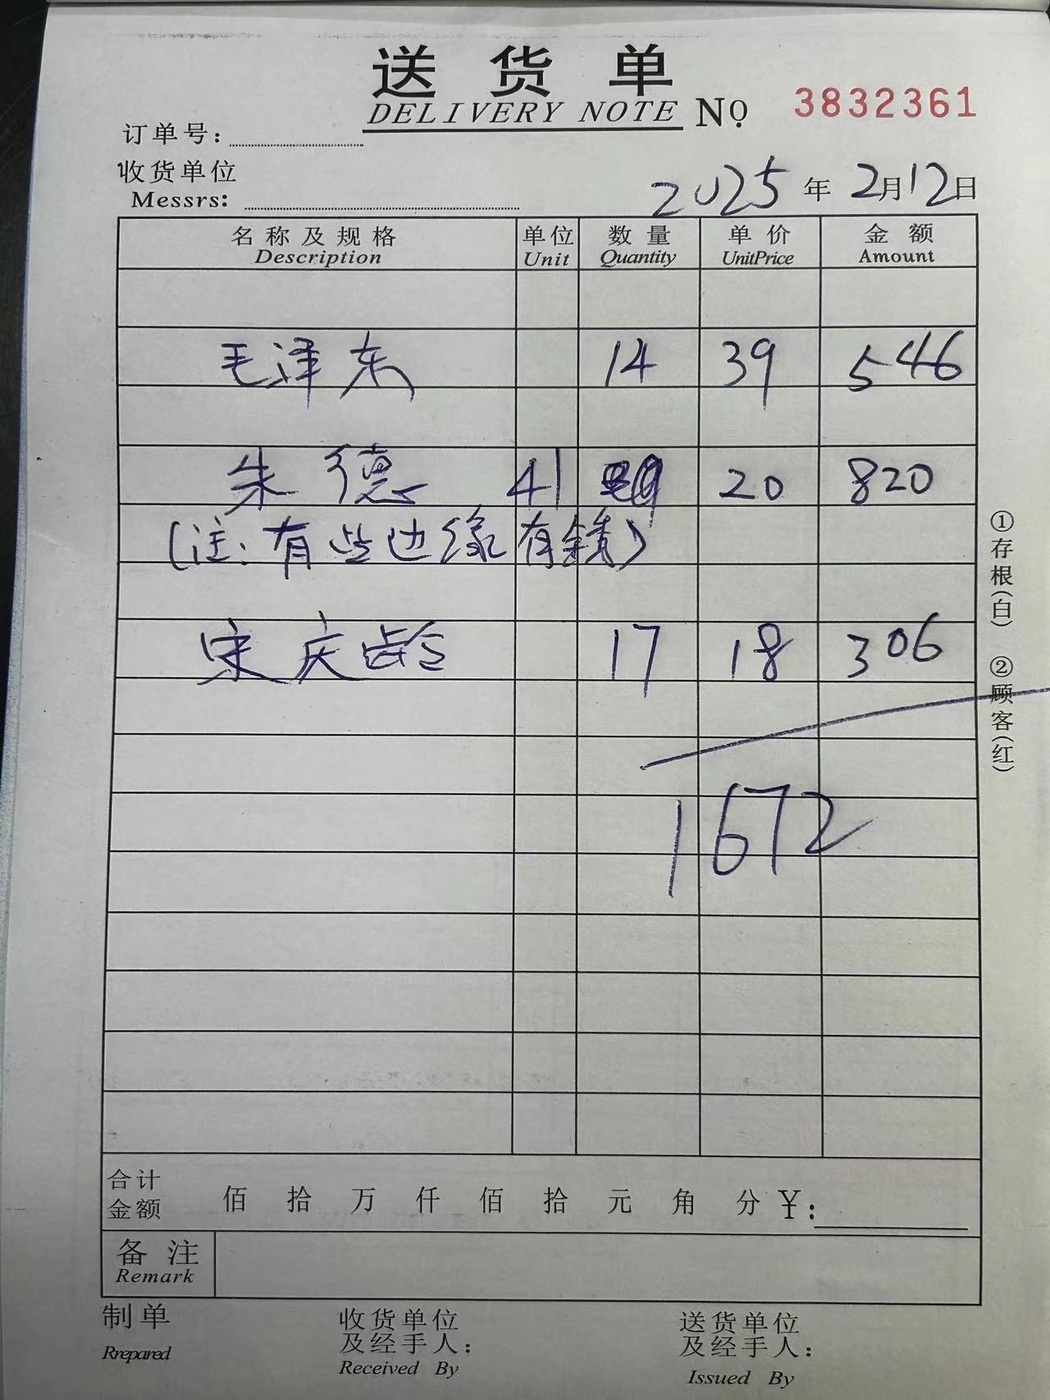 送货单
DELIVERY NOTE No 3832361
订单号：
收货单位
Messrs:
2025 年 2月12日
名称及规格 单位 数量 单价 金额
Description Unit Quantity UnitPrice Amount
毛泽东 14 39 546
朱德 41 20 820
(注：有些边缘有锈)
宋庆龄 17 18 306
1672
合计
金额 佰 拾 万 仟 佰 拾 元 角 分 ¥：
备注
Remark
制单 收货单位 送货单位
及经手人： 及经手人：
Rrepared Received By Issued By
①存根(白) ②顾客(红)